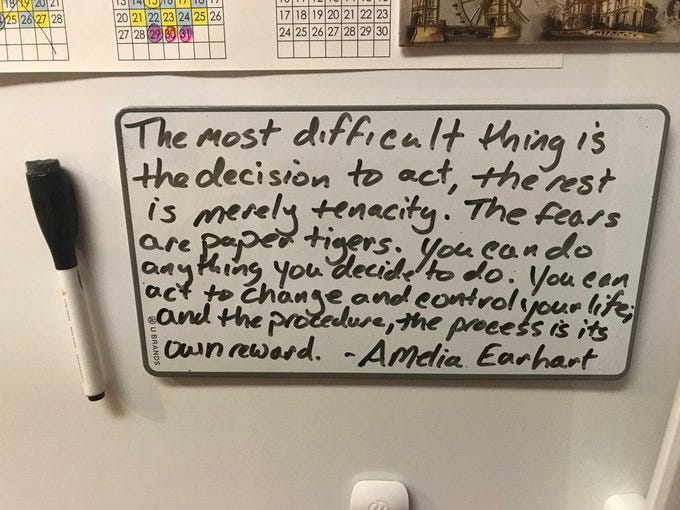 18 19 20 21
25 26 27
13 14 15 16 17 18 19
20 21 22 23 24 25 26
27 28 29 30 31
17 18 19 20 21 22 23
24 25 26 27 28 29 30
The most difficult thing is
the decision to act, the rest
is merely tenacity. The fears
are paper tigers. You can do
anything you decide to do. You can
act to change and control your life;
and the procedure, the process is its
own reward. - Amelia Earhart
U BRANDS